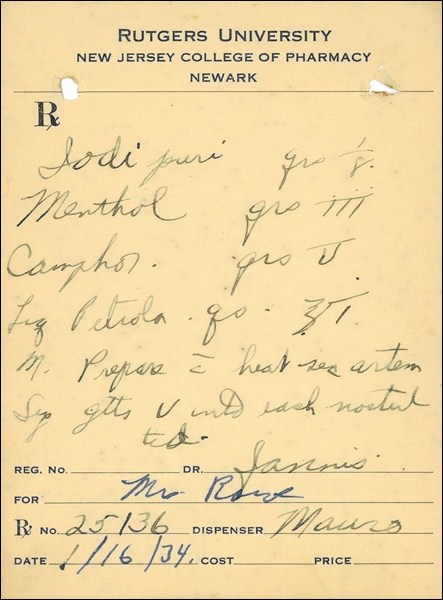 RUTGERS UNIVERSITY
NEW JERSEY COLLEGE OF PHARMACY
NEWARK
℞
Iodi puri grs 1/8.
Menthol grs III
Camphor. grs V
Liq Petrola. qs. ℥ I.
M. Prepare c̄ heat sec artem
Sig gtts V into each nostril
tid.
REG. NO. DR. Jannis
FOR Mr Rowe
℞ NO. 25136 DISPENSER Mauro
DATE 1/16/34. COST PRICE